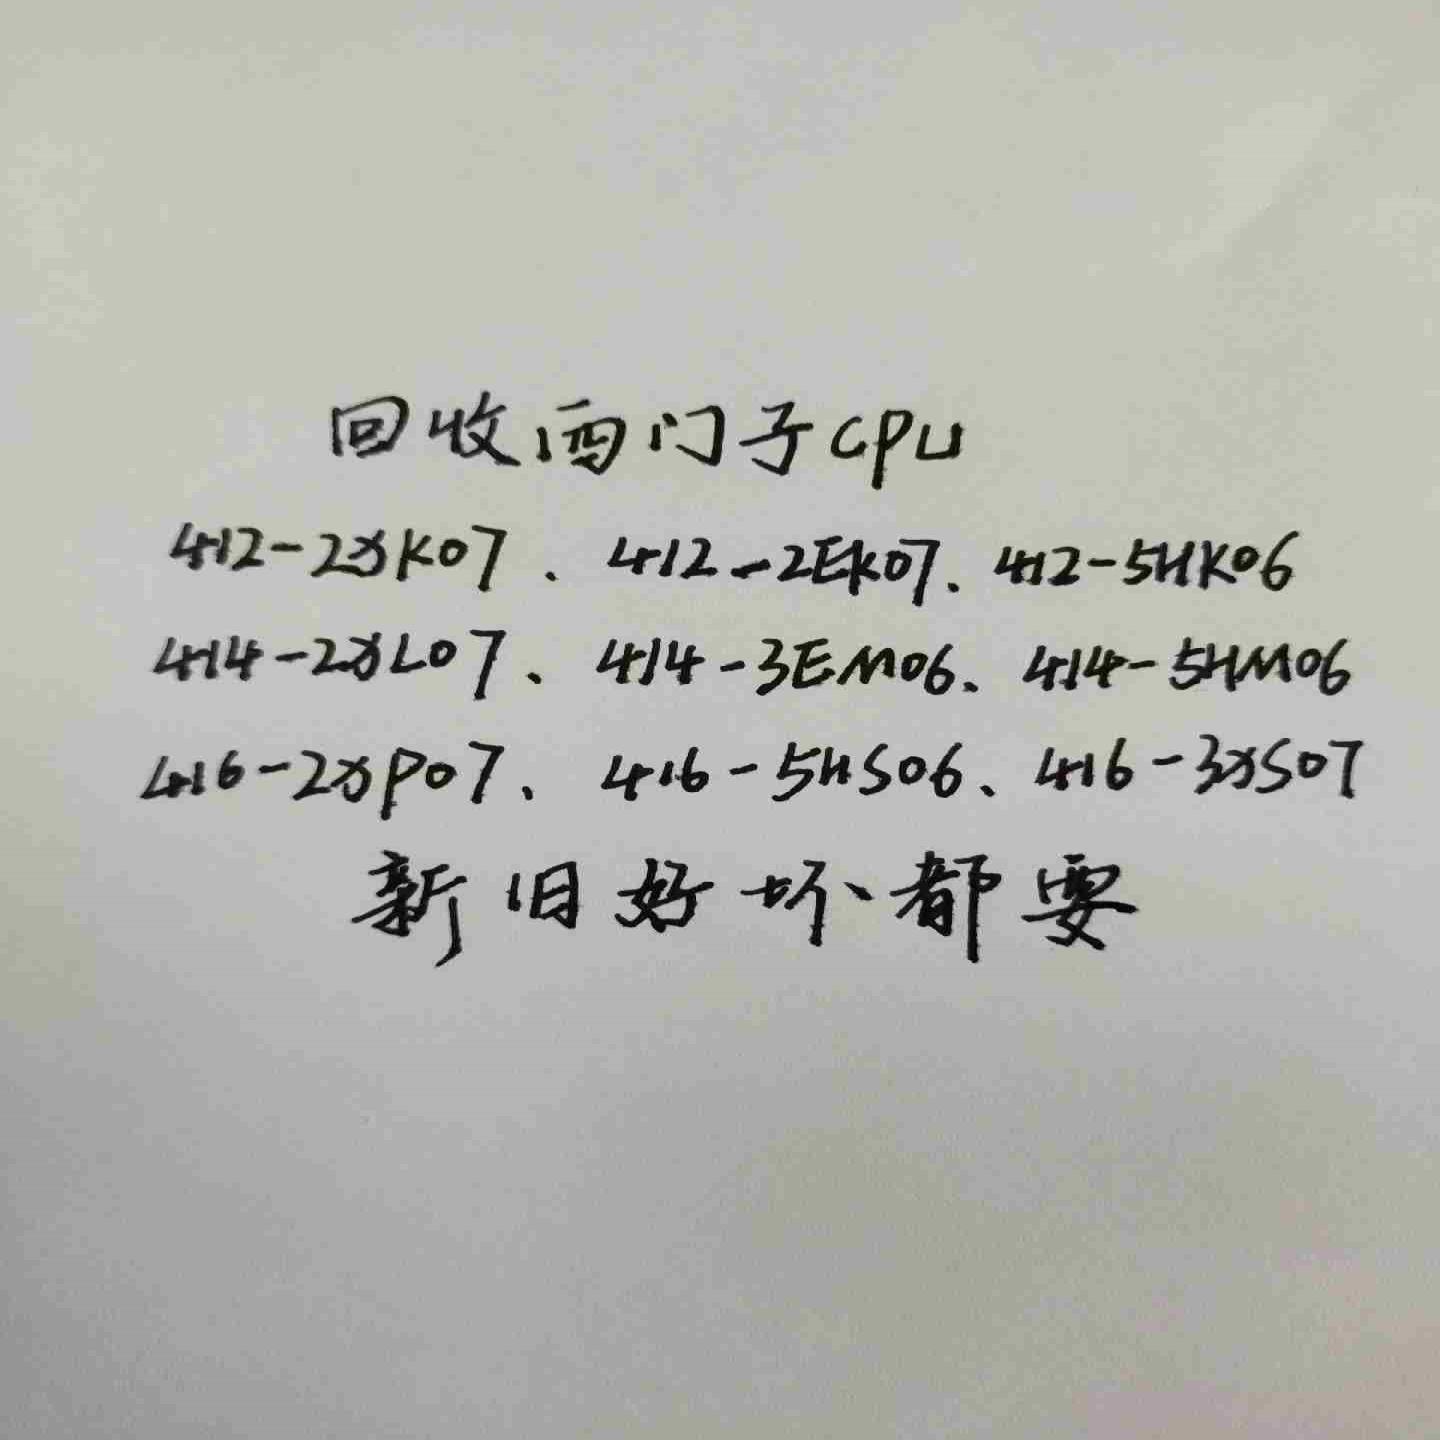 回收西门子CPU
412-2XK07、412-2EK07、412-5HK06
414-2XL07、414-3EM06、414-5HM06
416-2XP07、416-5HS06、416-3XS07
新旧好坏都要